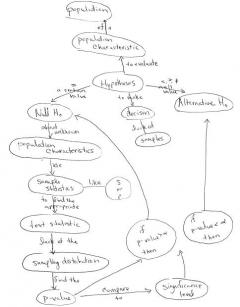 population
of a
population
characteristic
to evaluate
Hypotheses
a certain
value
to make
Null Ho
decision
Alternative Ha
about
unknown
samples
population
characteristics
use
sample
statistics
like
to find the
appropriate
test statistic
look at the
sampling distribution
find the
p-value
compare
to
significance
level
if
p-value > α
then
if
p-value < α
then